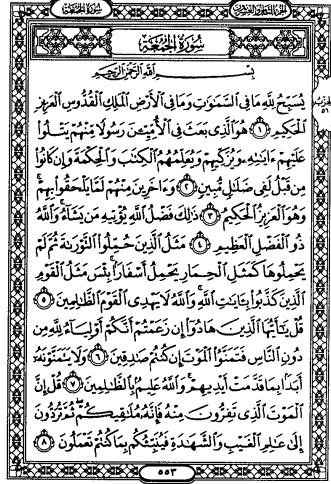 سُورَةُ الجُمُعَةِ
الجزء الثامن والعشرون
سُورَةُ الجُمُعَةِ
بِسْمِ اللَّهِ الرَّحْمَٰنِ الرَّحِيمِ
يُسَبِّحُ لِلَّهِ مَا فِي السَّمَٰوَٰتِ وَمَا فِي الْأَرْضِ الْمَلِكِ الْقُدُّوسِ الْعَزِيزِ
الْحَكِيمِ ١ هُوَ الَّذِي بَعَثَ فِي الْأُمِّيِّـنَ رَسُولًا مِّنْهُمْ يَتْلُوا
عَلَيْهِمْ ءَايَٰتِهِ وَيُزَكِّيهِمْ وَيُعَلِّمُهُمُ الْكِتَٰبَ وَالْحِكْمَةَ وَإِن كَانُوا
مِن قَبْلُ لَفِي ضَلَٰلٍ مُّبِينٍ ٢ وَءَاخَرِينَ مِنْهُمْ لَمَّا يَلْحَقُوا بِهِمْ
وَهُوَ الْعَزِيزُ الْحَكِيمُ ٣ ذَٰلِكَ فَضْلُ اللَّهِ يُؤْتِيهِ مَن يَشَاءُ وَاللَّهُ
ذُو الْفَضْلِ الْعَظِيمِ ٤ مَثَلُ الَّذِينَ حُمِّلُوا التَّوْرَىٰةَ ثُمَّ لَمْ
يَحْمِلُوهَا كَمَثَلِ الْحِمَارِ يَحْمِلُ أَسْفَارًا بِئْسَ مَثَلُ الْقَوْمِ
الَّذِينَ كَذَّبُوا بِـَٔايَٰتِ اللَّهِ وَاللَّهُ لَا يَهْدِي الْقَوْمَ الظَّٰلِمِينَ ٥
قُلْ يَٰأَيُّهَا الَّذِينَ هَادُوا إِن زَعَمْتُمْ أَنَّكُمْ أَوْلِيَاءُ لِلَّهِ مِن
دُونِ النَّاسِ فَتَمَنَّوُا الْمَوْتَ إِن كُنتُمْ صَٰدِقِينَ ٦ وَلَا يَتَمَنَّوْنَهُ
أَبَدًا بِمَا قَدَّمَتْ أَيْدِيهِمْ وَاللَّهُ عَلِيمٌ بِالظَّٰلِمِينَ ٧ قُلْ إِنَّ
الْمَوْتَ الَّذِي تَفِرُّونَ مِنْهُ فَإِنَّهُ مُلَٰقِيكُمْ ثُمَّ تُرَدُّونَ
إِلَىٰ عَٰلِمِ الْغَيْبِ وَالشَّهَٰدَةِ فَيُنَبِّئُكُم بِمَا كُنتُمْ تَعْمَلُونَ ٨
٥٥٣